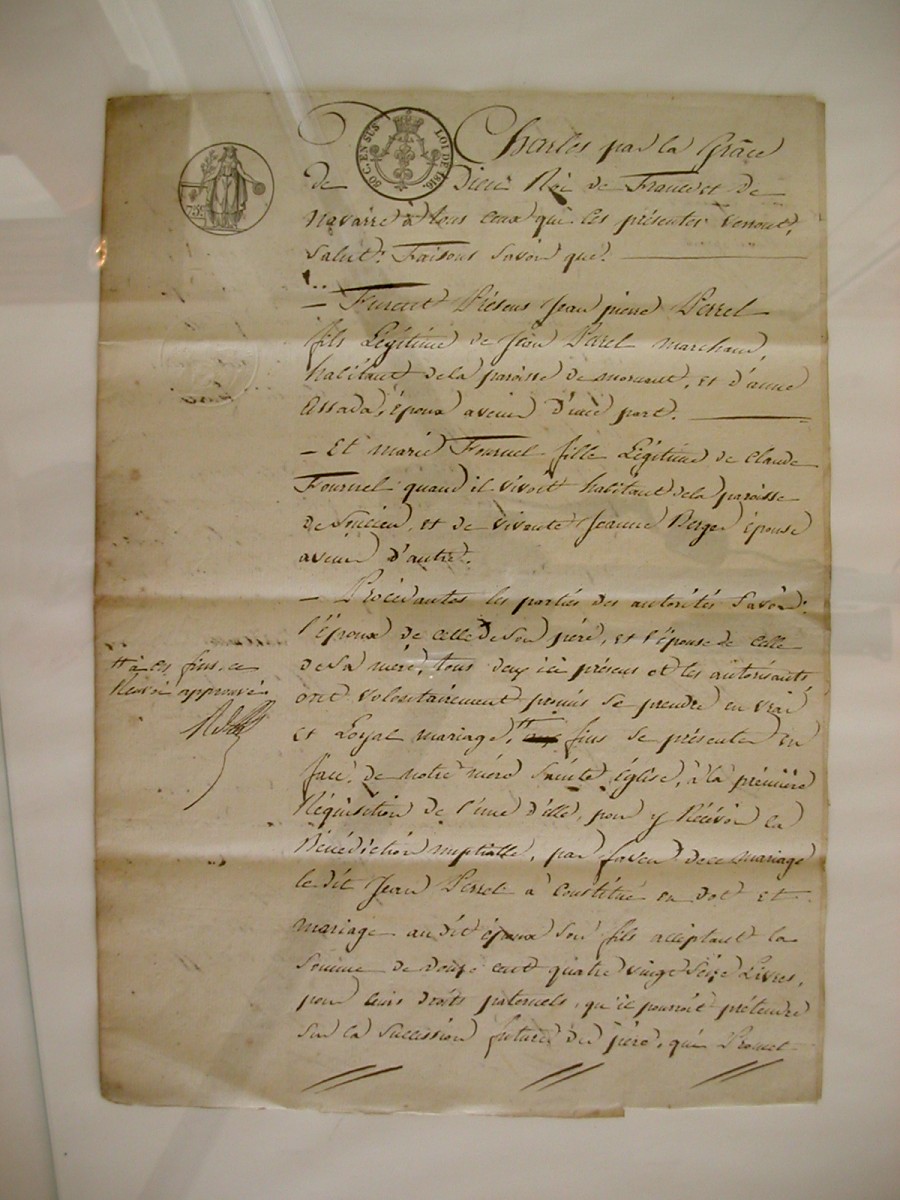 50 C. EN SUS
LOI DE 1816.
75
Charles par la Grâce
de Dieu Roi de France et de
Navarre à tous ceux qui les présentes verront,
Salut: Faisons Savoir que.
— Furent Présens Jean pierre Perrel
fils Légitime de Jean Perrel marchand,
habitant de la paroisse de mornant, et d'anne
Assada, époux avenir d'une part.
— Et marie Fournel fille Légitime de claude
Fournel quand il vivoit habitant dela paroisse
de et de vivante Jeanne Berger épouse
avenir d'autre.
— Procédantes les parties des autorités Savoir:
l'époux de celle de Son père, et l'épouse de celle
de Sa mère, tous deux ici présens et les autorisants
ont volontairement promis se prendre en vrai
et Loyal mariage, fins se présenter en
face de notre mère Sainte église, à la première
Réquisition de l'une d'elle, pour y Récévoir la
Bénédiction nuptialle, par faveur de ce mariage
le dit Jean Perrel à Constitué en dot et
mariage au dit époux Son fils acceptant la
Somme de douze cent quatre vingt Seize Livres,
pour leurs droits paternels, qu'il pourroit prétendre
Sur la Succession future du père, qui Promet
à ces fins, ce
Renvoi approuvé